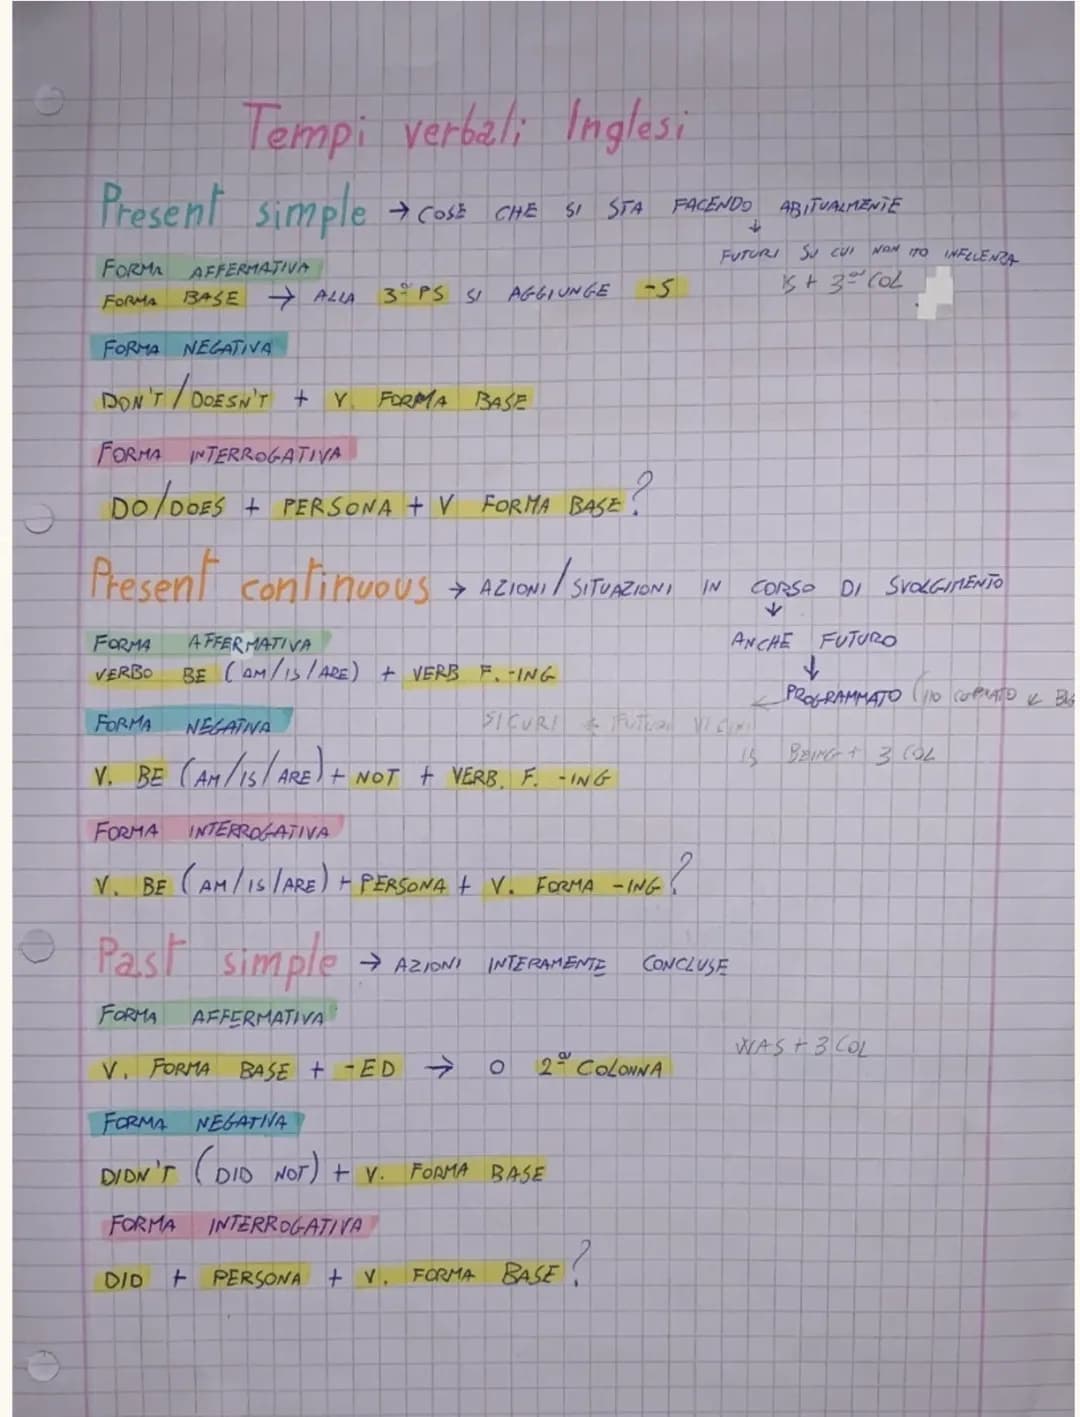 Tempi verbali Inglesi
Present simple → COSE CHE SI STA FACENDO ABITUALMENTE
↓
FUTURI SU CUI NON HO INFLUENZA
FORMA AFFERMATIVA
IS + 3ª COL
FORMA BASE → ALLA 3ª PS SI AGGIUNGE -S
FORMA NEGATIVA
DON'T / DOESN'T + V. FORMA BASE
FORMA INTERROGATIVA
DO/DOES + PERSONA + V FORMA BASE?
Present continuous → AZIONI / SITUAZIONI IN CORSO DI SVOLGIMENTO
↓
FORMA AFFERMATIVA
ANCHE FUTURO
↓
VERBO BE (AM/IS/ARE) + VERB F. -ING
← PROGRAMMATO (HO
FORMA NEGATIVA
SICURI FUTURI
IS BEING + 3 COL
V. BE (AM/IS/ARE) + NOT + VERB. F. -ING
FORMA INTERROGATIVA
V. BE (AM/IS/ARE) + PERSONA + V. FORMA -ING?
Past simple → AZIONI INTERAMENTE CONCLUSE
FORMA AFFERMATIVA
WAS + 3 COL
V. FORMA BASE + -ED → O 2ª COLONNA
FORMA NEGATIVA
DIDN'T (DID NOT) + V. FORMA BASE
FORMA INTERROGATIVA
DID + PERSONA + V. FORMA BASE?